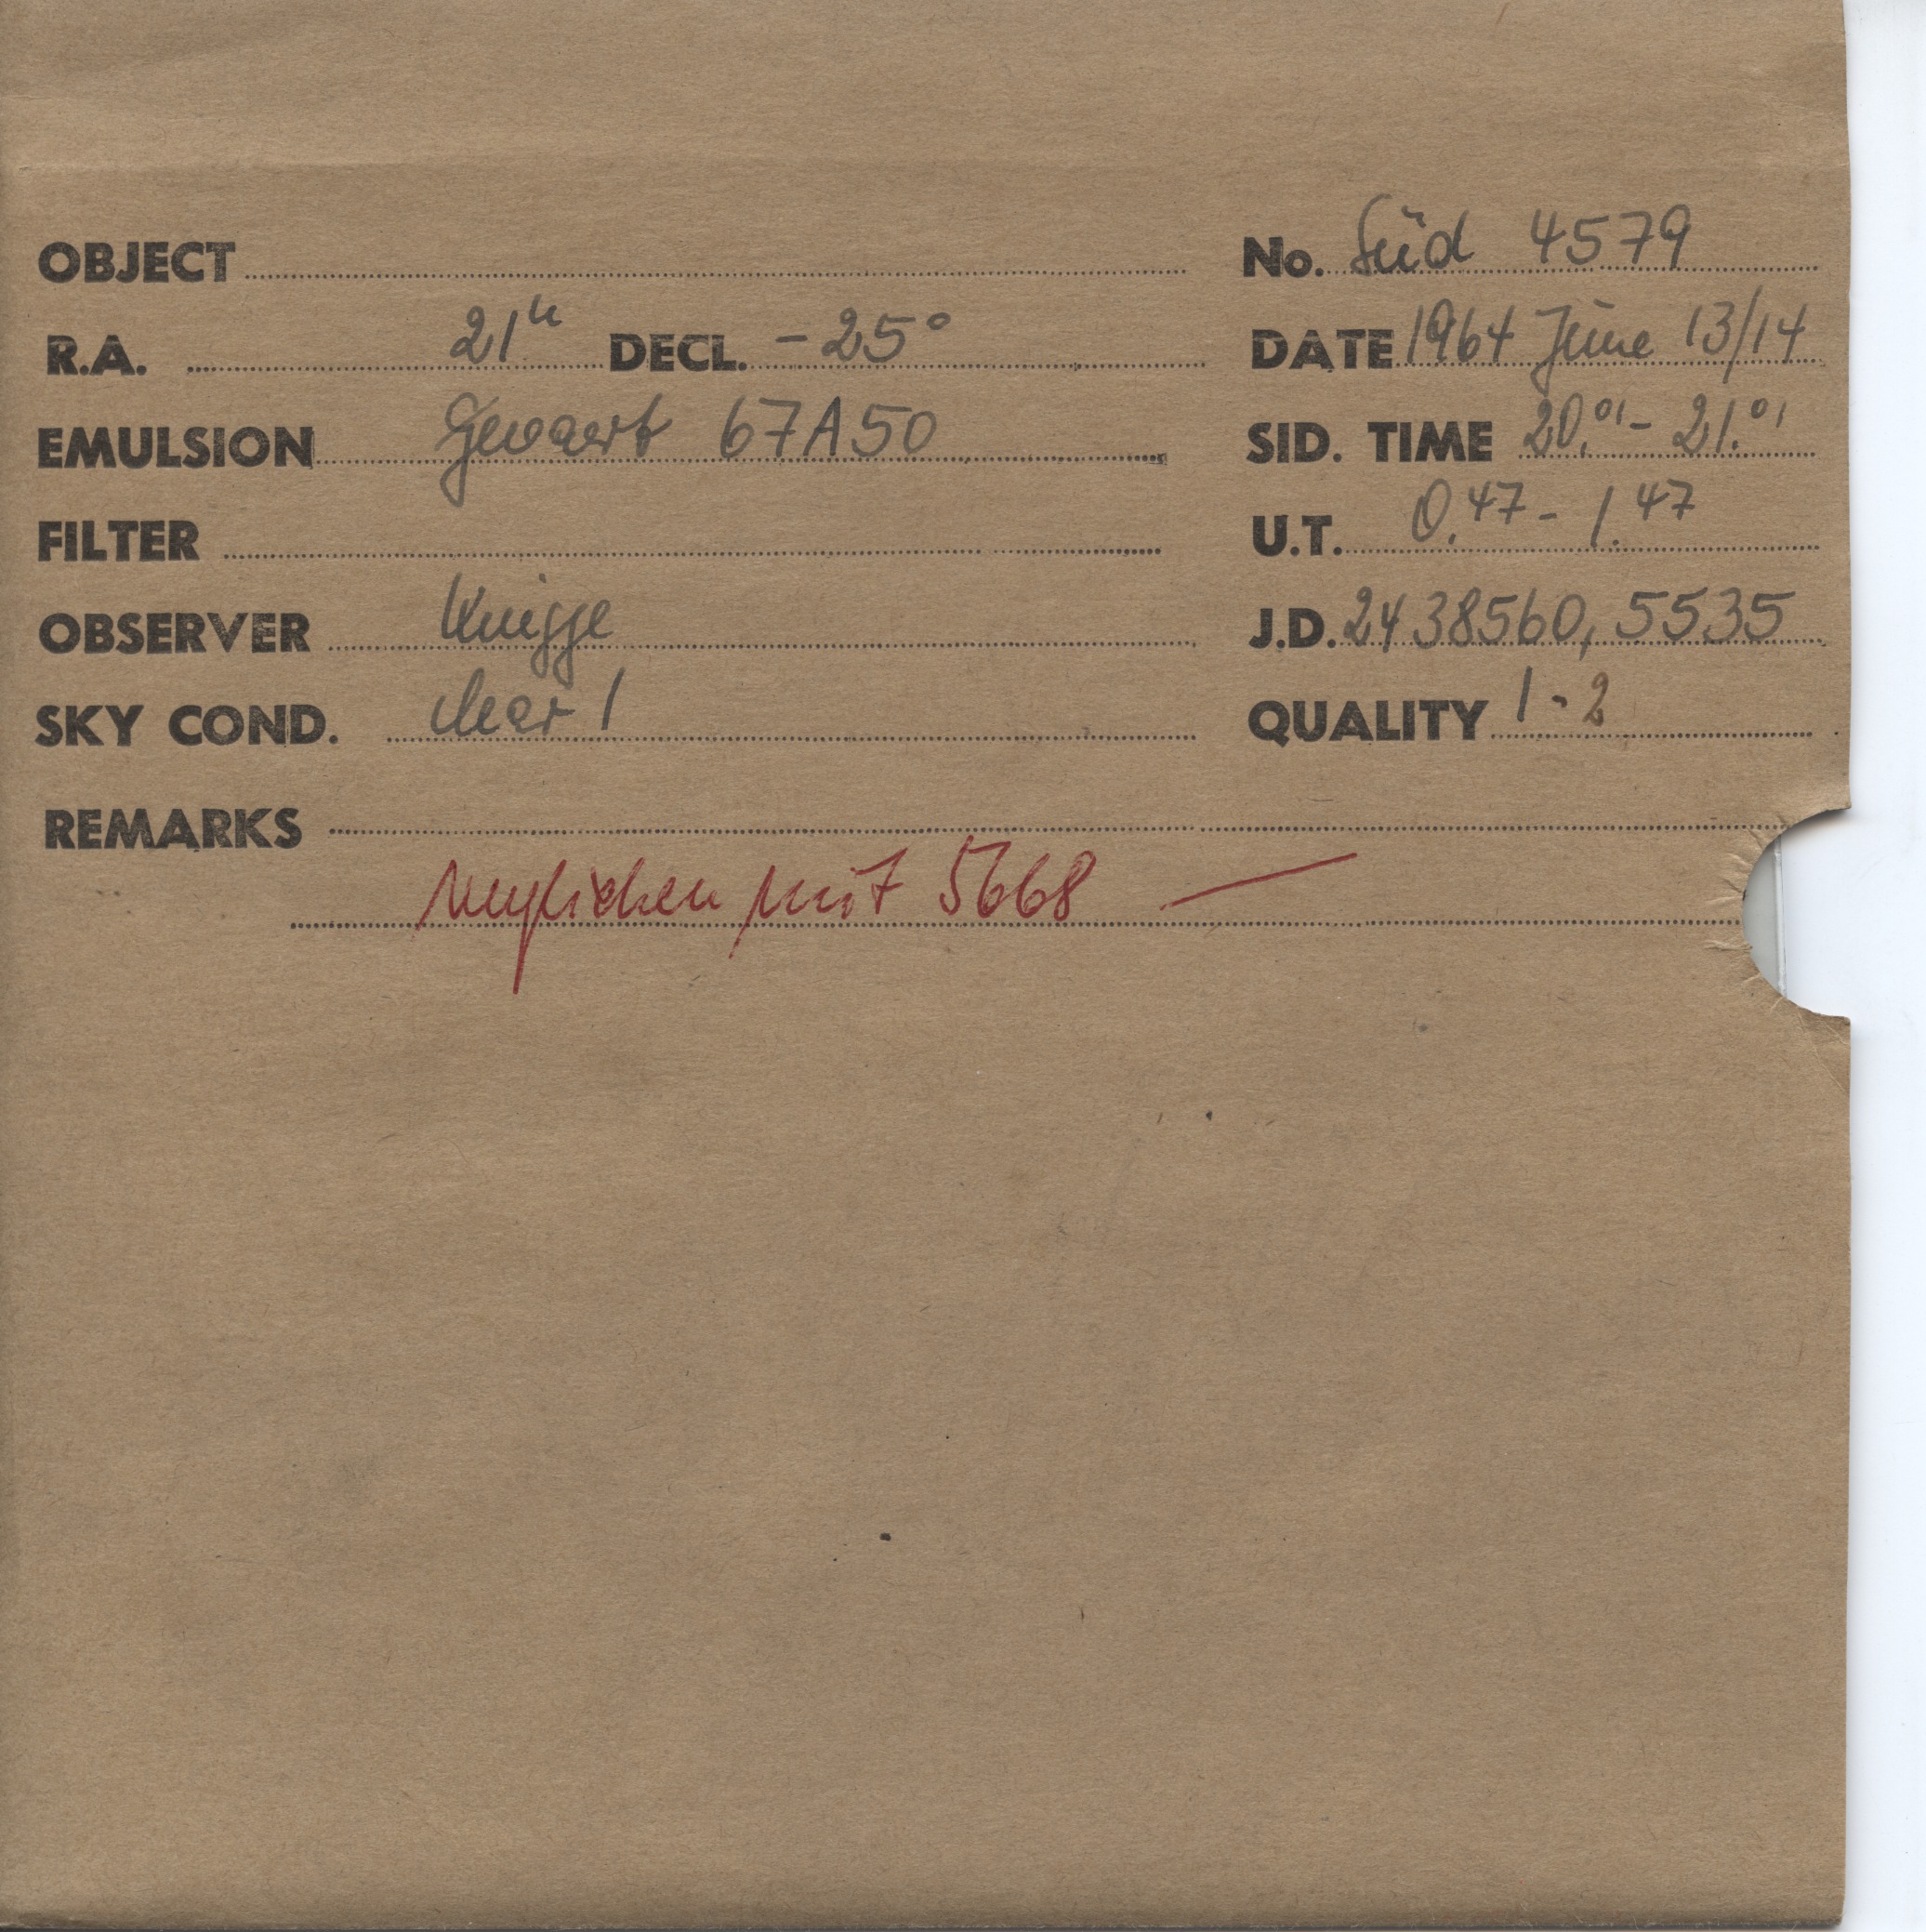 OBJECT No. Süd 4579
R.A. 21h DECL. -25° DATE 1964 June 13/14
EMULSION Gevaert 67A50 SID. TIME 20.01 - 21.01
FILTER U.T. 0.47 - 1.47
OBSERVER Knigge J.D. 2438560,5535
SKY COND. clear 1 QUALITY 1-2
REMARKS
verglichen mit 5668 —